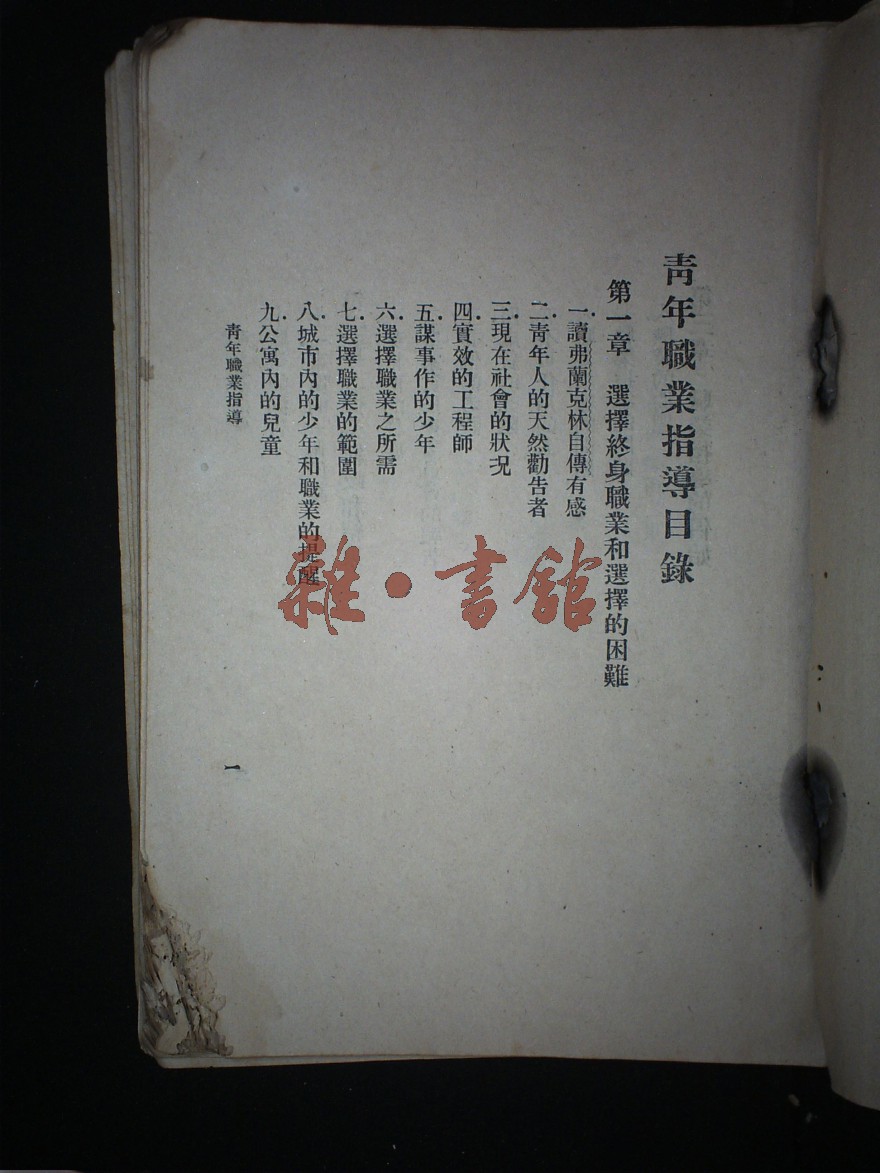 靑年職業指導目錄
第一章　選擇終身職業和選擇的困難
一.讀弗蘭克林自傳有感
二.靑年人的天然勸告者
三.現在社會的狀况
四.實效的工程師
五.謀事作的少年
六.選擇職業之所需
七.選擇職業的範圍
八.城市內的少年和職業的提醒
九.公寓內的兒童
靑年職業指導
一
雜·書館